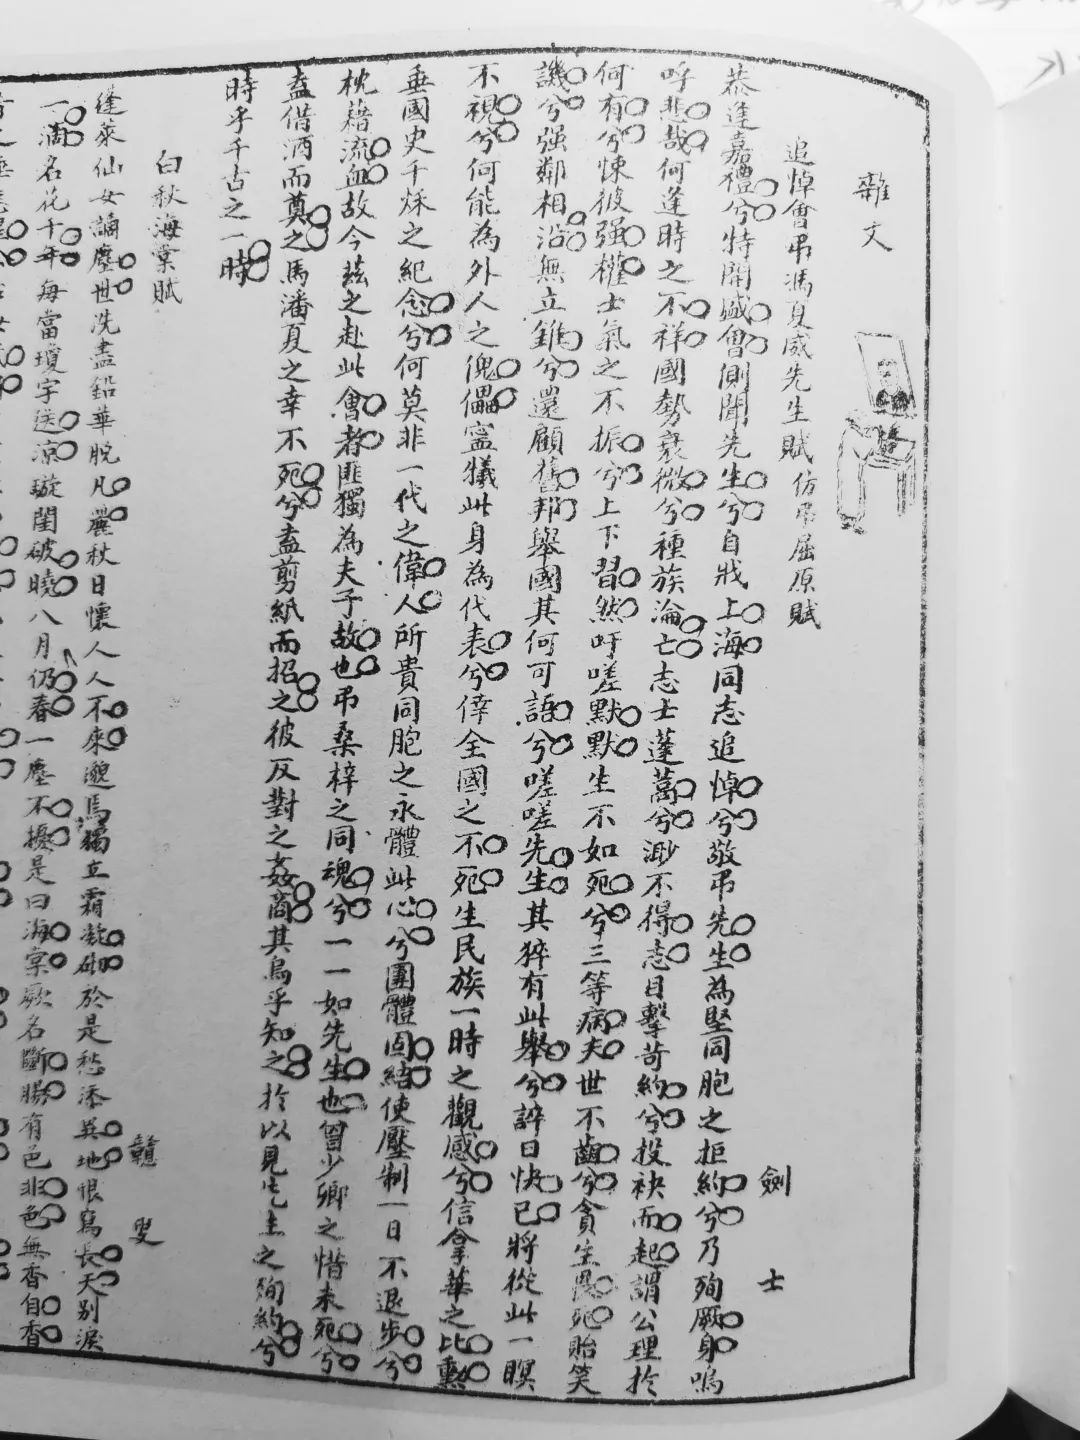 雜文
追悼會弔馮夏威先生賦仿弔屈原賦
劍士
恭逢嘉禮兮特開盛會側聞先生兮自戕上海同志追悼兮敬弔先生為堅同胞之拒約兮乃殉厥身嗚
呼悲哉何逢時之不祥國勢衰微兮種族淪亡志士蓬蒿兮渺不得志目擊苛約兮投袂而起謂公理於
何有兮悚彼强權士氣之不振兮上下習然吁嗟默默生不如死兮三等病夫世不齒兮貪生畏死貽笑
譏兮强鄰相沿無立錐兮還顧舊邦舉國其何可語兮嗟嗟先生其猝有此舉兮誶曰快已將從此一瞑
不視兮何能為外人之傀儡寧犧此身為代表兮倖全國之不死生民族一時之觀感兮信拿華之比勳
垂國史千秌之紀念兮何莫非一代之偉人所貴同胞之永體此心兮團體固結使壓制一日不退步兮
枕藉流血故今茲之赴此會者匪獨為夫子故也弔桑梓之同魂兮一一如先生也曾少卿之惜未死兮
盍借酒而奠之馬潘夏之幸不死兮盍剪紙而招之彼反對之姦商其烏乎知之於以見先生之殉約兮
時乎千古之一時
白秋海棠賦
贛叟
蓬萊仙女謫塵世洗盡鉛華脫凡麗秋日懷人人不來邈焉獨立霜凝砌於是愁添異地恨寫長天別淚
一滴名花十年每當瓊宇送涼璇閨破曉八月仍春一塵不擾是曰海棠厥名斷腸有色非色無香自香